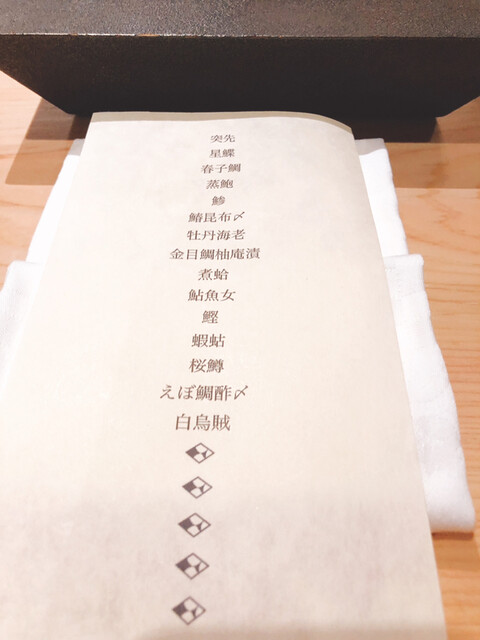 突先
星鰈
春子鯛
蒸鮑
鯵
鰆昆布〆
牡丹海老
金目鯛柚庵漬
煮蛤
鮎魚女
鰹
蝦蛄
桜鱒
えぼ鯛酢〆
白烏賊